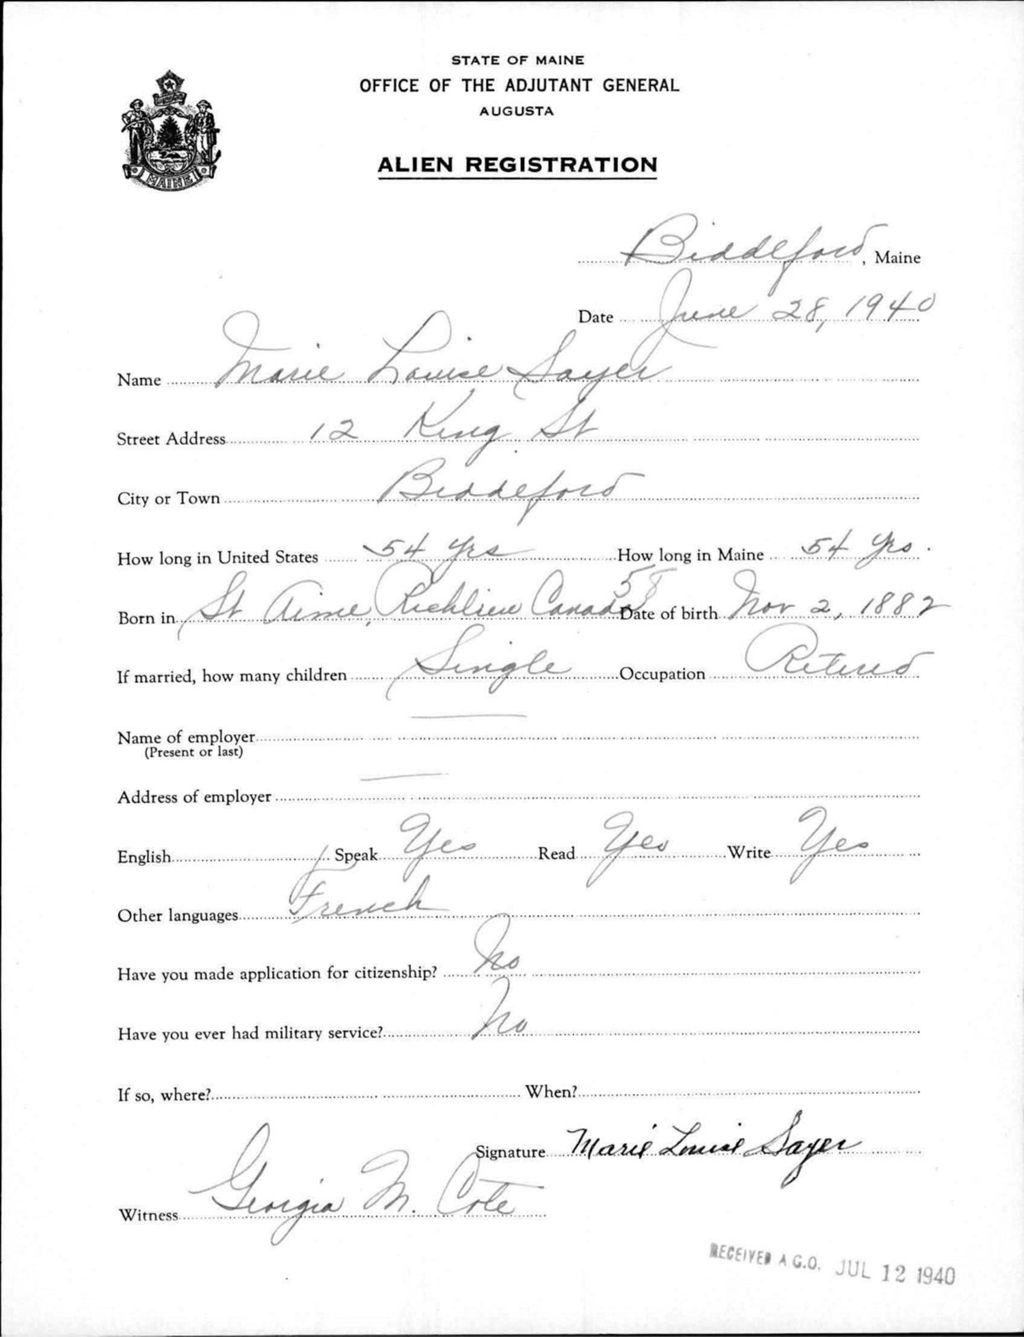 STATE OF MAINE
OFFICE OF THE ADJUTANT GENERAL
AUGUSTA
MAINE
ALIEN REGISTRATION
Biddeford, Maine
Date June 28, 1940
Name Marie Louise Sayer
Street Address 12 King St
City or Town Biddeford
How long in United States 54 yrs How long in Maine 54 yrs.
58
Born in St Aime, Richlieu Canada Date of birth Nov 2, 1882
If married, how many children Single Occupation Retired
Name of employer
(Present or last)
Address of employer
English Speak Yes Read Yes Write Yes
Other languages French
Have you made application for citizenship? No
Have you ever had military service? No
If so, where? When?
Signature Marie Louise Sayer
Witness Georgia M. Cote
RECEIVED A.G.O. JUL 12 1940